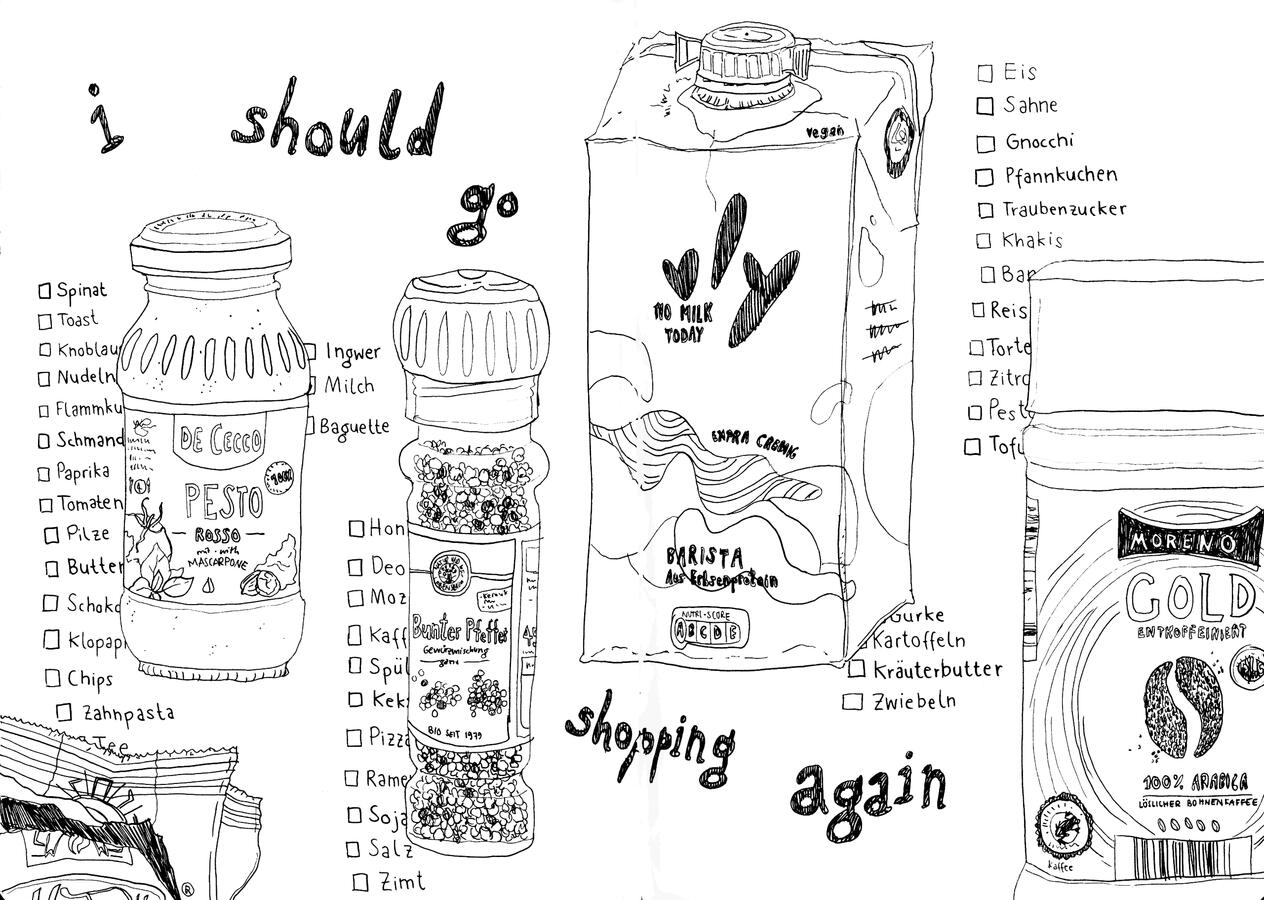 i should
go
shopping
again
Spinat
Toast
Knoblau
Nudeln
Flammku
Schmand
Paprika
Tomaten
Pilze
Butter
Schoko
Klopapi
Chips
Zahnpasta
Tee
DE CECCO
100%
PESTO
ROSSO
mit · with
MASCARPONE
Ingwer
Milch
Baguette
Hon
Deo
Moz
Kaff
Spül
Keks
Pizza
Rame
Soja
Salz
Zimt
Bunter Pfeffer
Gewürzmischung
ganz
BIO SEIT 1979
®
vegan
vly
NO MILK
TODAY
EXTRA CREMIG
BARISTA
Aus Erbsenprotein
NUTRI-SCORE
A B C D E
Eis
Sahne
Gnocchi
Pfannkuchen
Traubenzucker
Khakis
Ban
Reis
Torte
Zitro
Pest
Tofu
Gurke
Kartoffeln
Kräuterbutter
Zwiebeln
MORENO
GOLD
ENTKOFFEINIERT
100% ARABICA
LÖSLICHER BOHNENKAFFEE
Kaffee